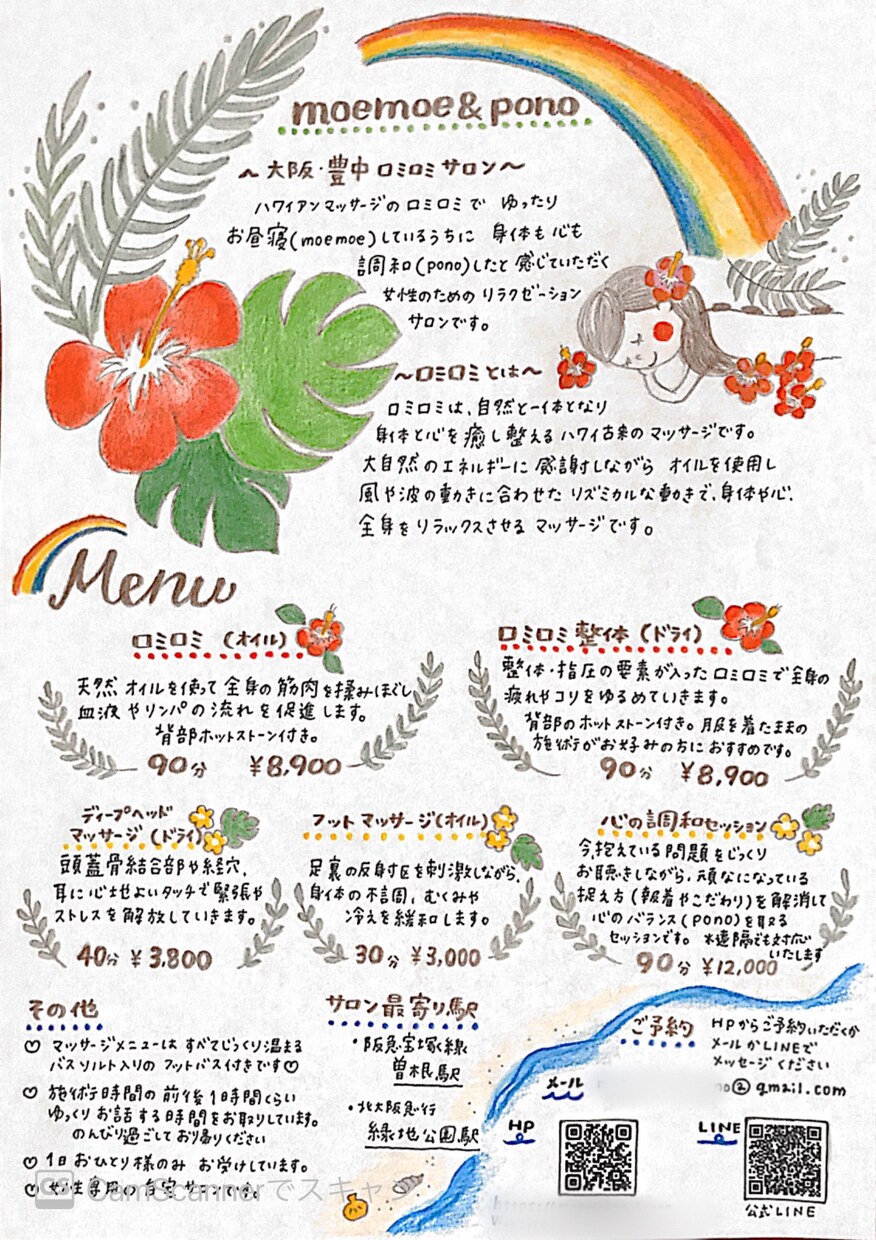 moemoe & pono
〜大阪・豊中 ロミロミ サロン〜
ハワイアンマッサージの ロミロミで ゆったり
お昼寝(moemoe)しているうちに 身体も心も
調和(pono)したと感じていただく
女性のための リラクゼーション
サロンです。
〜ロミロミとは〜
ロミロミは、自然と一体となり
身体と心を癒し整えるハワイ古来のマッサージです。
大自然のエネルギーに感謝しながら オイルを使用し
風や波の動きに合わせた リズミカルな動きで、身体や心、
全身をリラックスさせる マッサージです。
Menu
ロミロミ (オイル)
天然オイルを使って全身の筋肉を揉みほぐし
血液やリンパの流れを促進します。
背部ホットストーン付き。
90分 ¥8,900
ロミロミ整体 (ドライ)
整体・指圧の要素が入ったロミロミで全身の
疲れやコリをゆるめていきます。
背部のホットストーン付き。服を着たままの
施術がお好みの方におすすめです。
90分 ¥8,900
ディープヘッド
マッサージ (ドライ)
頭蓋骨結合部や経穴、
耳に心地よいタッチで緊張や
ストレスを解放していきます。
40分 ¥3,800
フットマッサージ(オイル)
足裏の反射区を刺激しながら、
身体の不調、むくみや
冷えを緩和します。
30分 ¥3,000
心の調和セッション
今、抱えている問題をじっくり
お聴きしながら、頑なになっている
捉え方(執着やこだわり)を解消して
心のバランス(pono)を取る
セッションです。 ※遠隔でも対応
いたします
90分 ¥12,000
その他
♡ マッサージメニューは すべてじっくり温まる
バスソルト入りの フットバス付きです♡
♡ 施術時間の前後1時間くらい
ゆっくりお話する時間をお取りしています。
のんびり過ごしてお帰りください
♡ 1日おひとり様のみ お受けしています。
♡ 女性専用の自宅サロンです。
CS CamScannerでスキャ
サロン最寄り駅
・阪急宝塚線
曽根駅
・北大阪急行
緑地公園駅
ご予約
HPからご予約いただくか
メールかLINEで
メッセージください
メール
no@gmail.com
HP
LINE
公式LINE